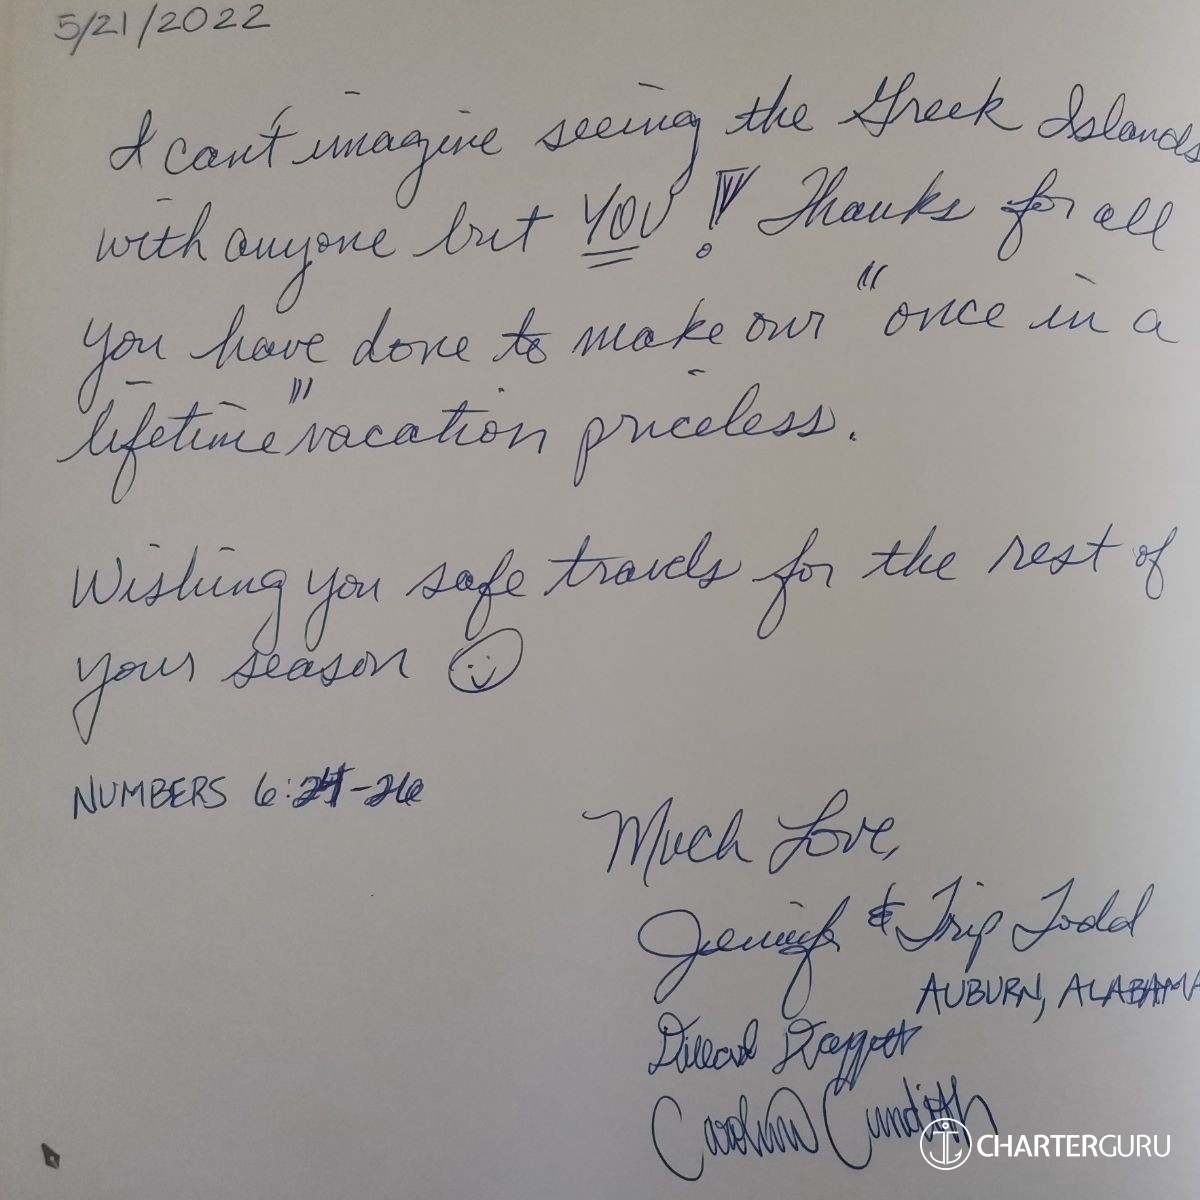 5/21/2022
I can't imagine seeing the Greek Islands
with anyone but YOU! Thanks for all
you have done to make our "once in a
lifetime" vacation priceless.
Wishing you safe travels for the rest of
your season
NUMBERS 6:24-26
Much Love,
Jennifer & Trip Todd
AUBURN, ALABAMA
CHARTERGURU